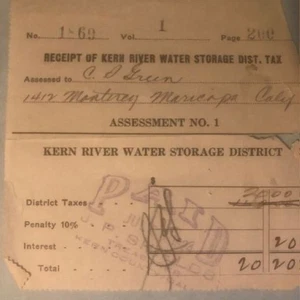 1
No. 1869 Vol. Page 200
RECEIPT OF KERN RIVER WATER STORAGE DIST. TAX
Assessed to C. D. Green
1412 Monterey Maricopa Calif
ASSESSMENT NO. 1
KERN RIVER WATER STORAGE DISTRICT
$
District Taxes
Penalty 10%
Interest 20
Total 20 20
PAID